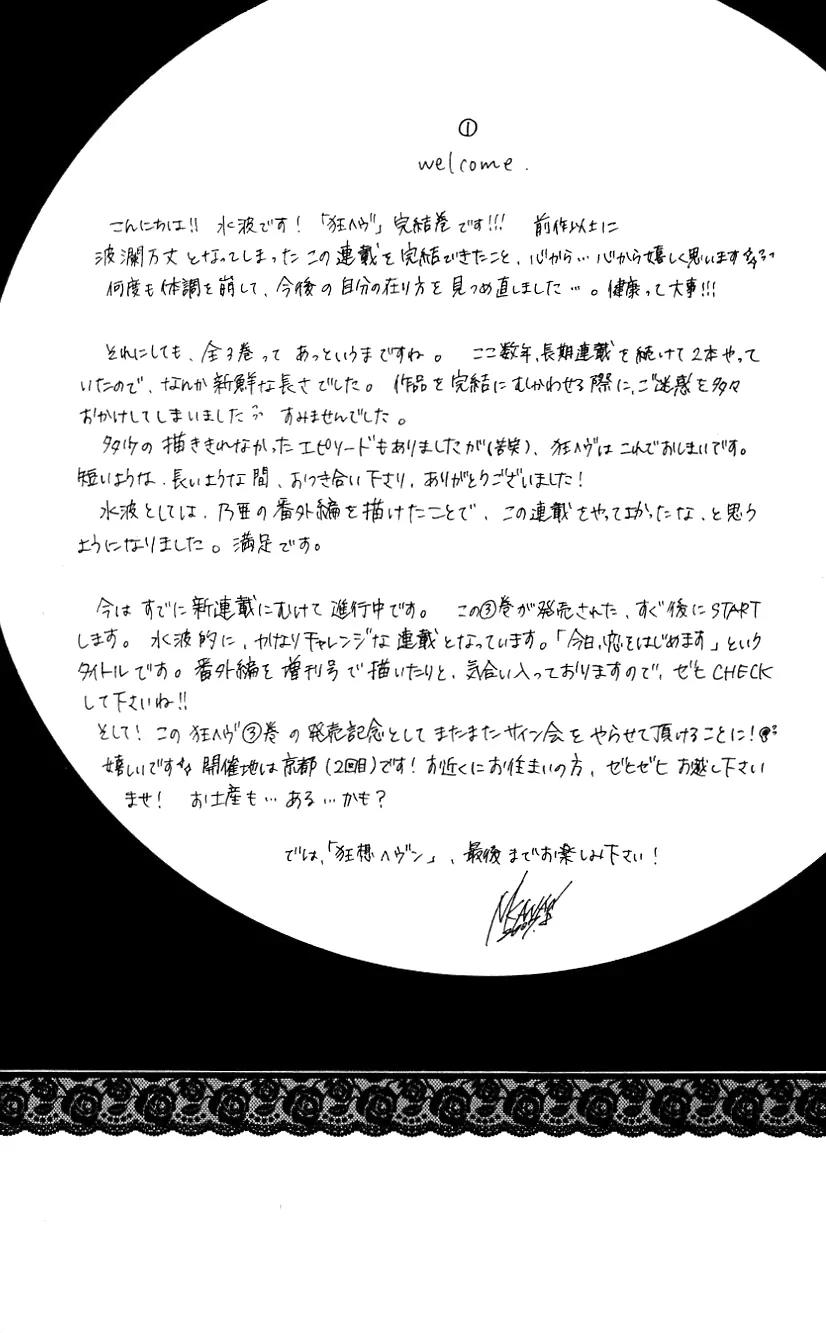 ①
welcome.
こんにちは!! 水波です! 「狂ヘヴ」完結巻です!!! 前作以上に
波瀾万丈となってしまったこの連載を完結できたこと、心から…心から嬉しく思います
何度も体調を崩して、今後の自分の在り方を見つめ直しました…。健康って大事!!!
それにしても、全3巻ってあっというまですね。 ここ数年、長期連載を続けて2本やって
いたので、なんか新鮮な長さでした。作品を完結にむかわせる際に、ご迷惑を多々
おかけしてしまいました すみませんでした。
タタイウの描ききれなかったエピソードもありましたが(苦笑)、狂ヘヴはこれでおしまいです。
短いような、長いような間、おつき合い下さり、ありがとうございました!
水波としては、乃亜の番外編を描けたことで、この連載をやってよかったな、と思う
ようになりました。満足です。
今はすでに新連載にむけて進行中です。 この③巻が発売された、すぐ後にSTART
します。水波的に、かなりチャレンジな連載となっています。「今日、恋をはじめます」という
タイトルです。番外編を増刊号で描いたりと、気合い入っておりますので、ぜひCHECK
して下さいね!!
そして! この狂ヘヴ③巻の発売記念としてまたまたサイン会をやらせて頂けることに!
嬉しいです 開催地は京都(2回目)です! お近くにお住まいの方、ぜひぜひお越し下さい
ませ! お土産も…ある…かも?
では、「狂想ヘヴン」、最後までお楽しみ下さい!